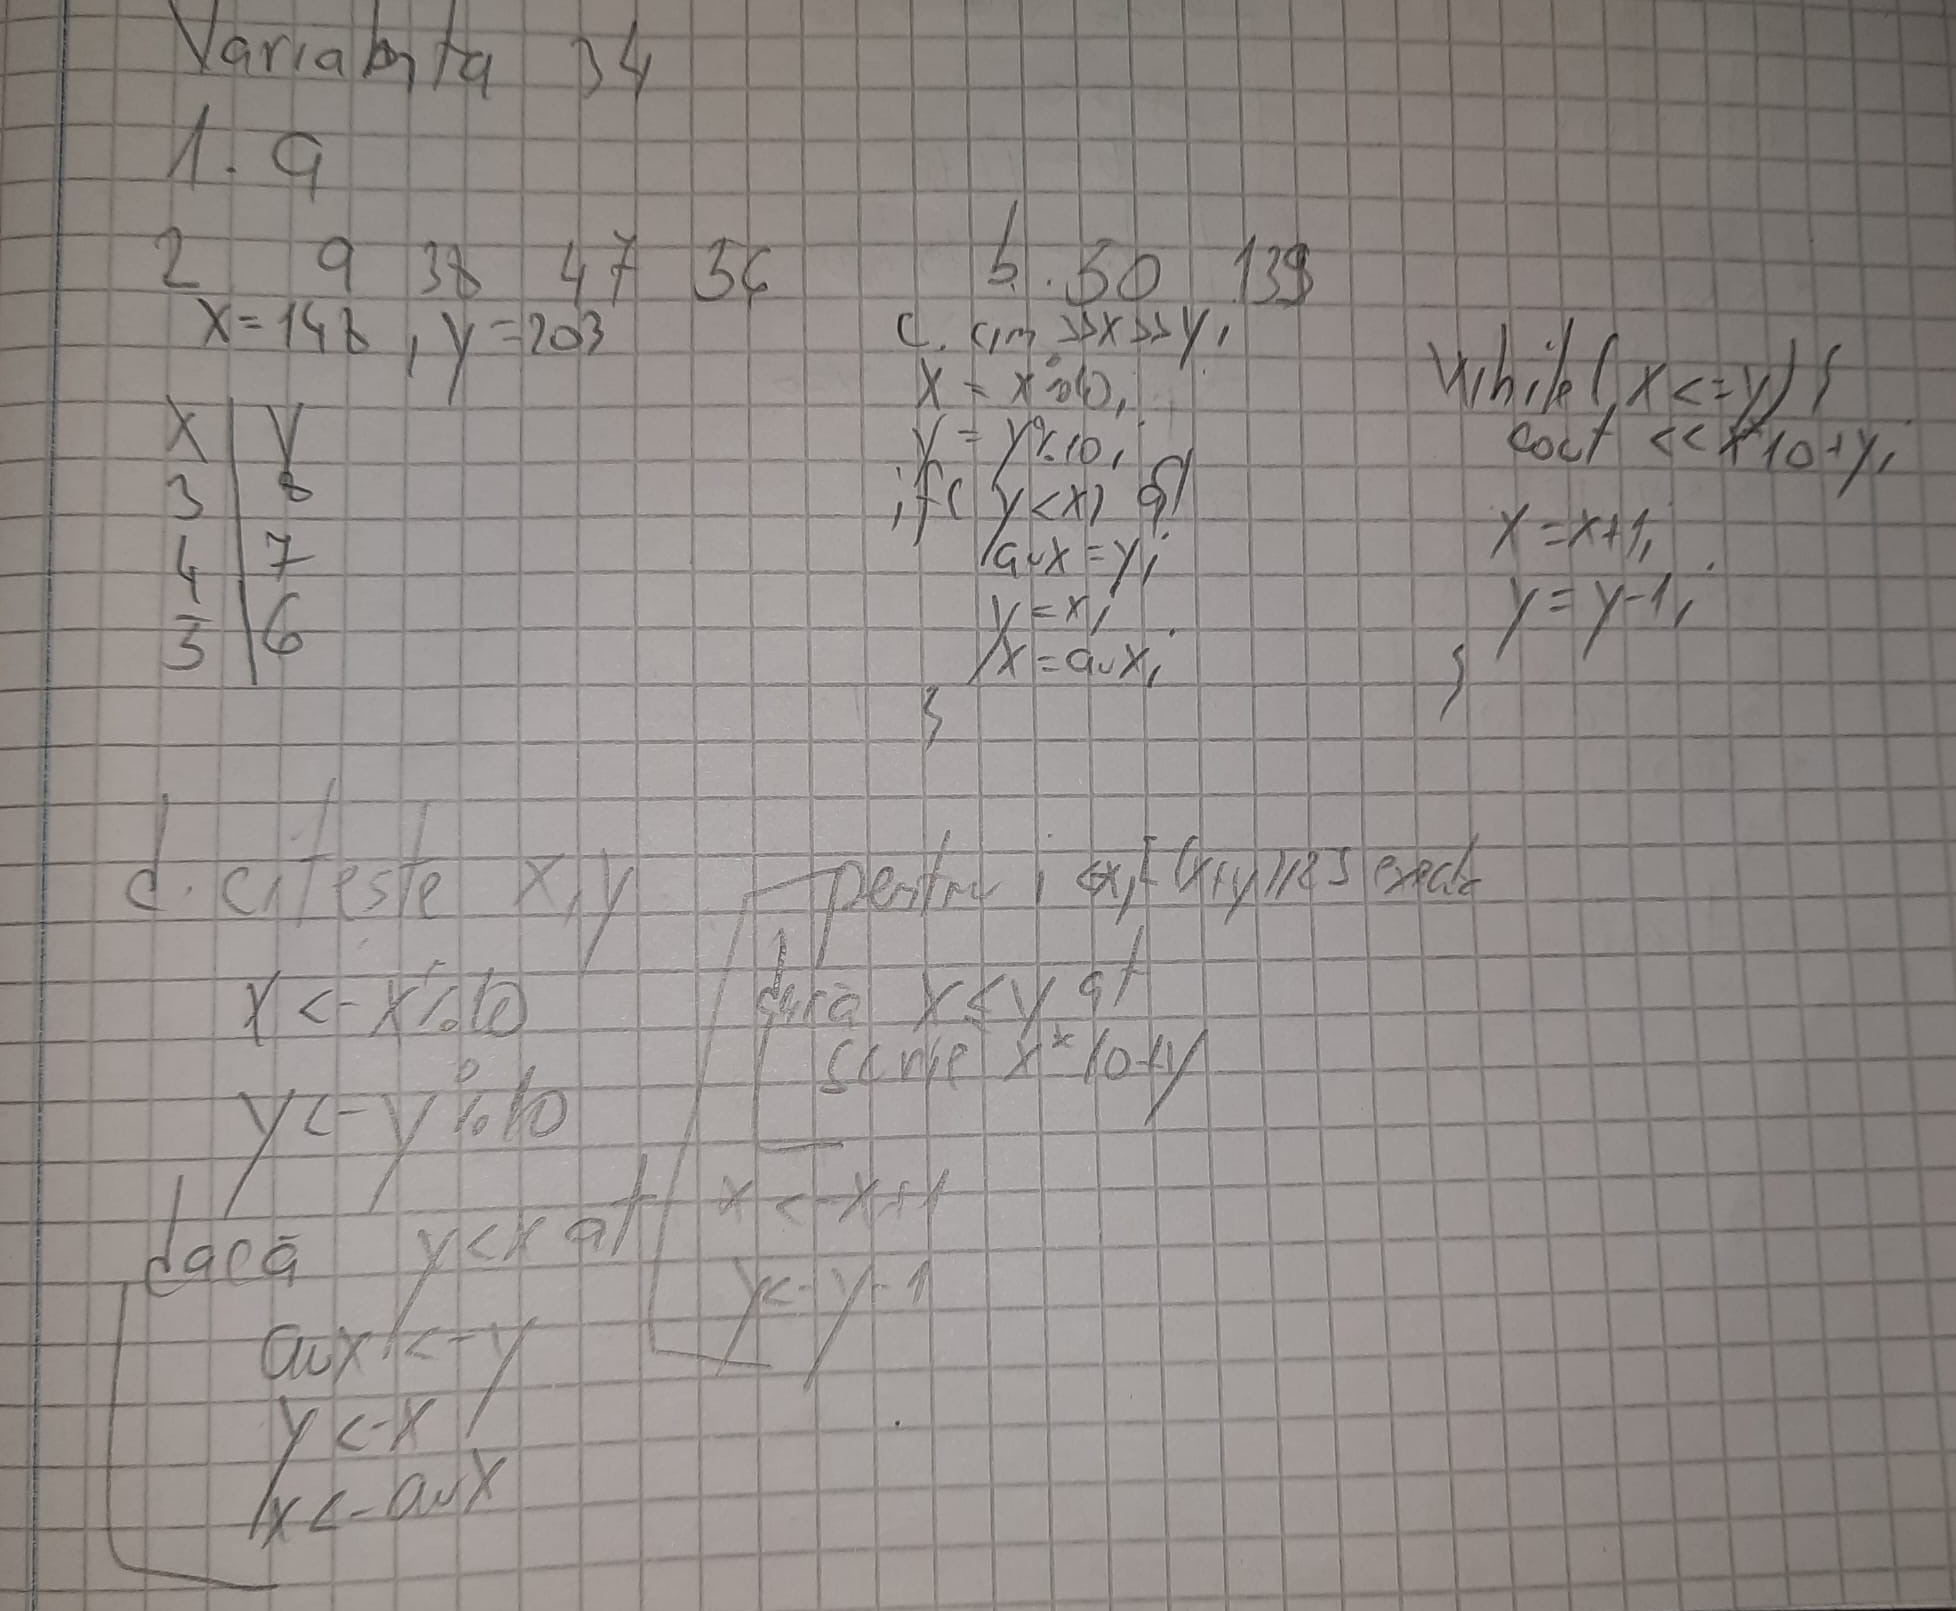 Varianta 34
1. a
2 9 38 47 56
x=148, y=203
x | y
3 | 8
4 | 7
5 | 6
b. 50 139
c. cin >>x>>y;
x = x%10;
y = y%10;
if( y<x) {
aux=y;
y=x;
x=aux;
}
while( x<=y) {
cout <<x*10+y;
x=x+1;
y=y-1;
}
d. citeste x,y
x<-x%10
y<-y%10
dacă y<x at
aux<-y
y<-x
x<-aux
pentru i <-x,[(x+y)/2] exec
dacă x≤y at
scrie x*10+y
x<-x+1
y<-y-1